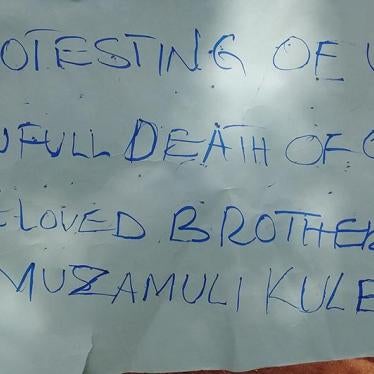 OTESTING OF
FULL DEATH OF
LOVED BROTHER
MUZAMULI KULE